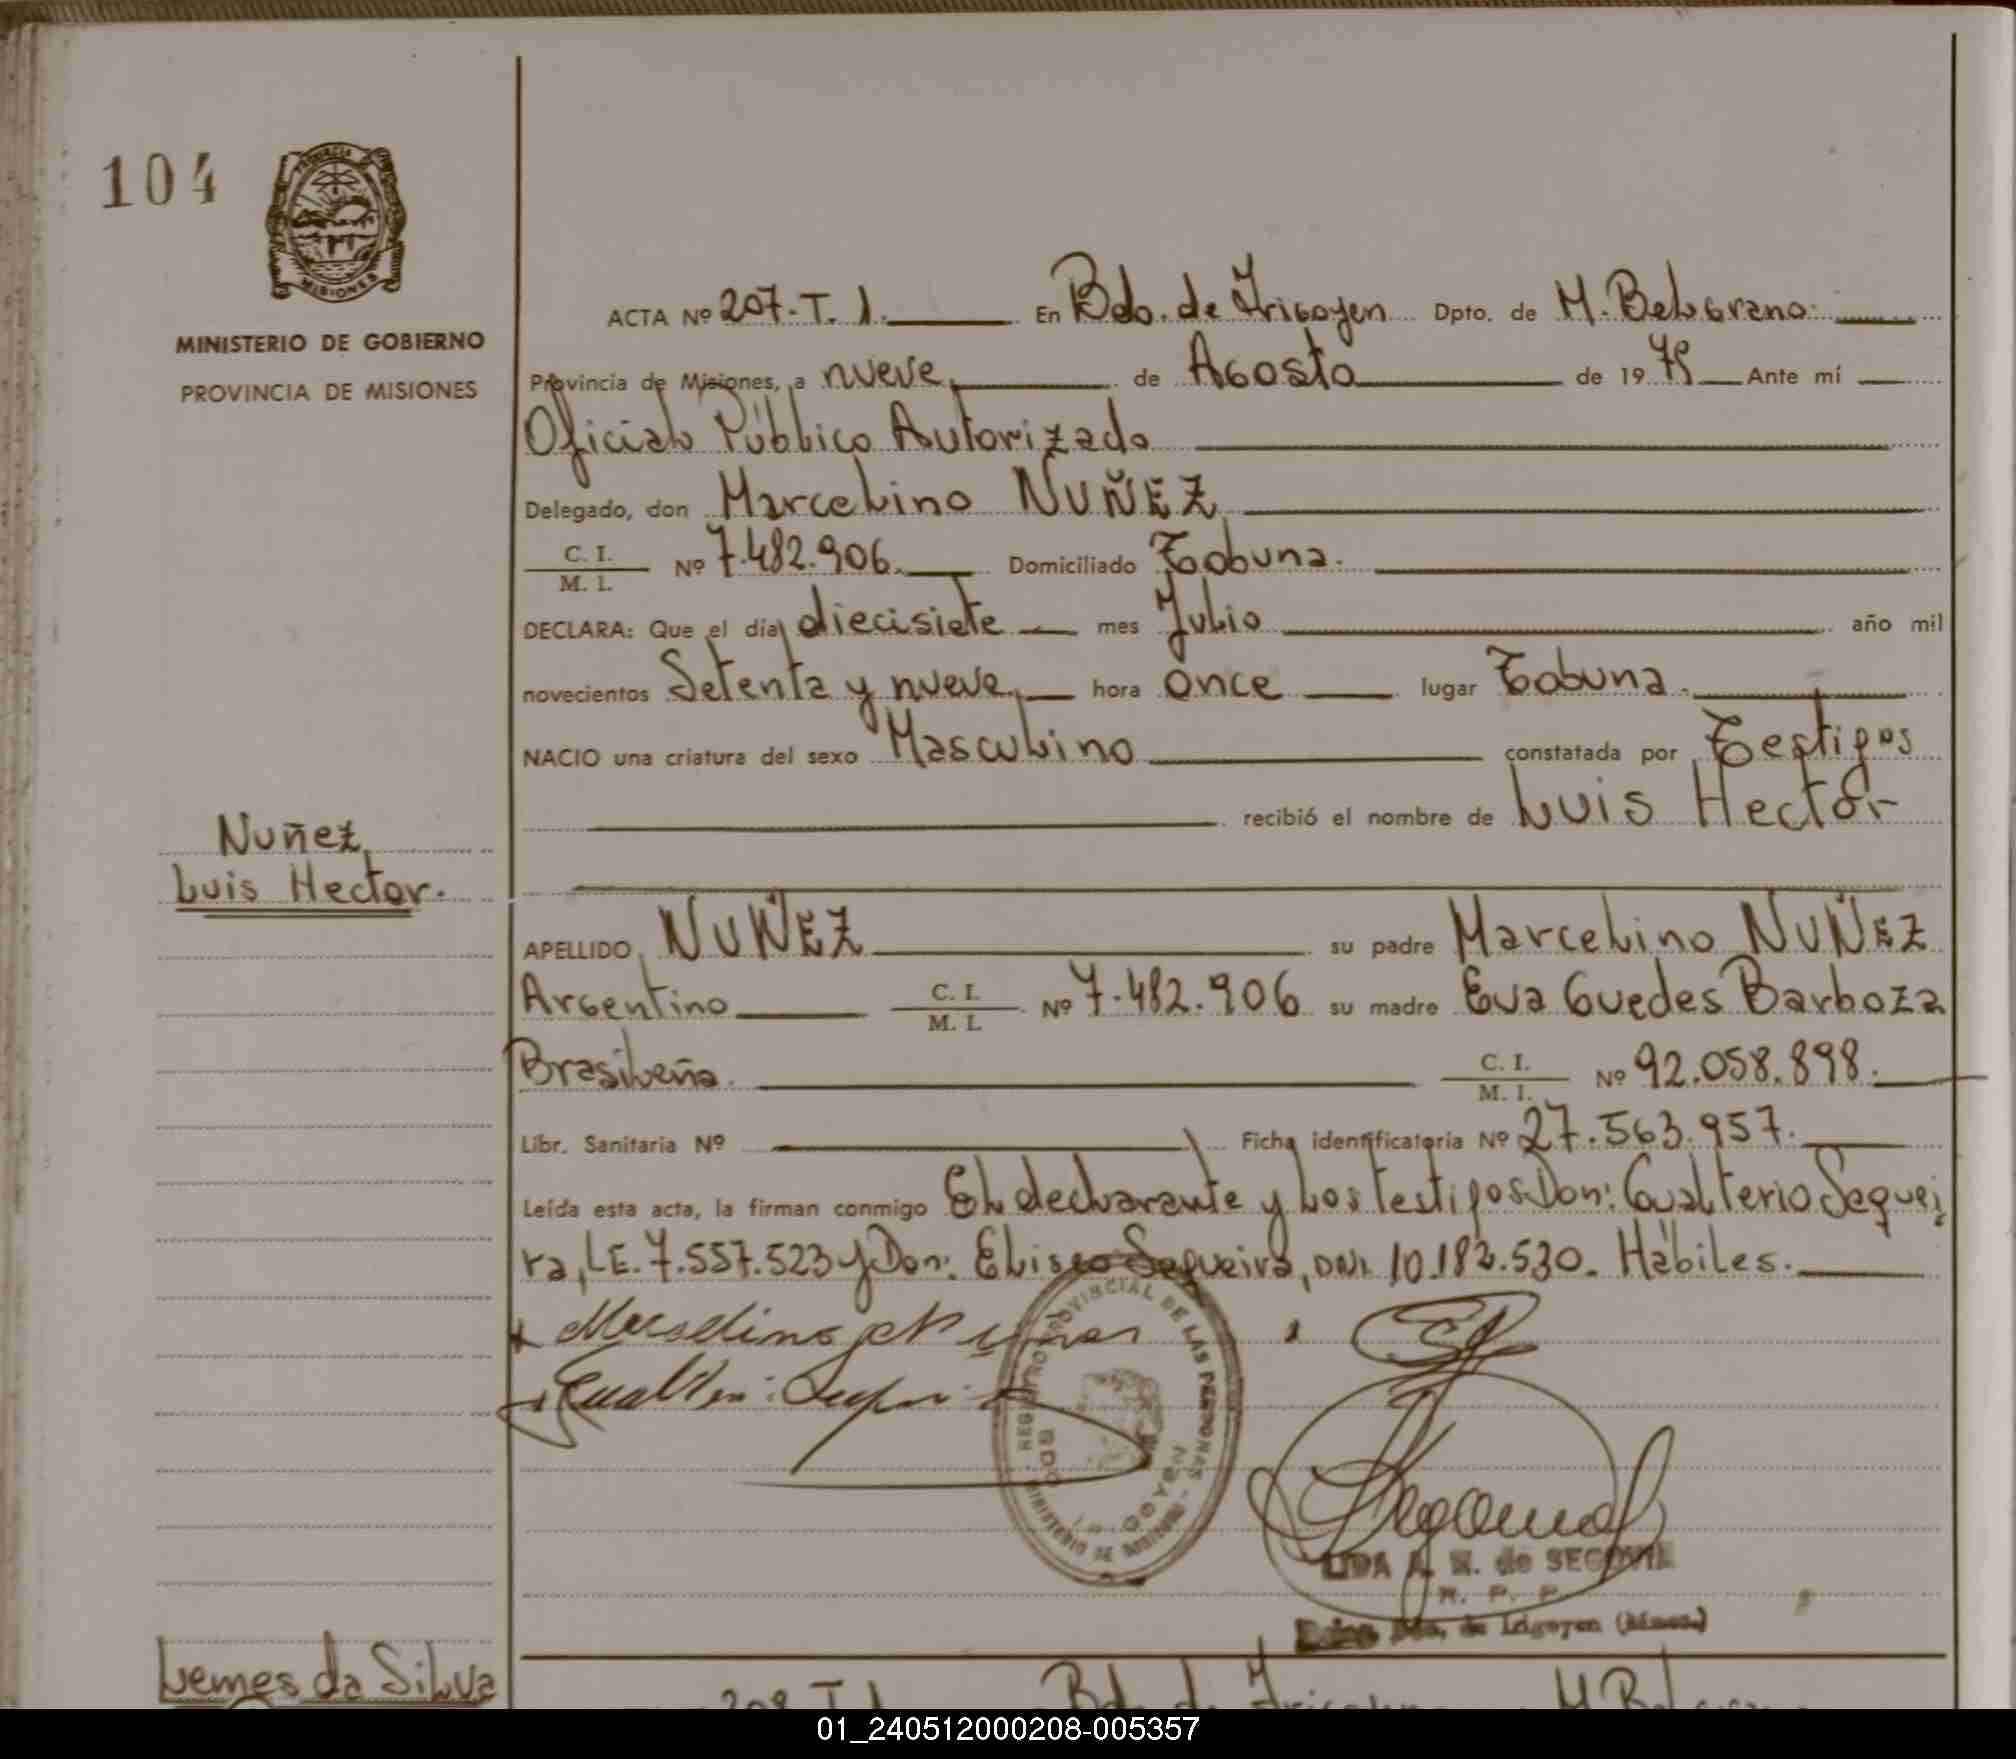 104
PROVINCIA
MISIONES
MINISTERIO DE GOBIERNO
PROVINCIA DE MISIONES
ACTA Nº 207.T.1. En Bdo. de Irigoyen Dpto. de M. Belgrano.
Provincia de Misiones, a nueve, de Agosto de 1979 Ante mí
Oficial Público Autorizado
Delegado, don Marcelino NUÑEZ
C. I. / M. I. Nº 7.482.906. Domiciliado Tobuna.
DECLARA: Que el día diecisiete mes Julio año mil
novecientos Setenta y nueve, hora once lugar Tobuna.
NACIO una criatura del sexo Masculino constatada por Testigos
recibió el nombre de Luis Hector
Nuñez,
Luis Hector.
APELLIDO NUÑEZ su padre Marcelino NUÑEZ
Argentino C. I. / M. I. Nº 7.482.906 su madre Eva Guedes Barboza
Brasileña. C. I. / M. I. Nº 92.058.898.
Libr. Sanitaria Nº Ficha identificatoria Nº 27.563.957.
Leída esta acta, la firman conmigo El declarante y los testigos Don: Gualterio Sequei
ra, LE. 7.557.523 y Don: Eliseo Sequeira, DNI 10.182.530. Hábiles.
Marselino Nuñes
REGISTRO PROVINCIAL DE LAS PERSONAS
MINISTERIO DE
BDO. IRIGOYEN
LIDA A. N. de SEGOVIA
Bdo. de Irigoyen (Mnes.)
Lemes da Silva
208.T.1 Bdo. de Irigoyen M. Belgrano
01_240512000208-005357